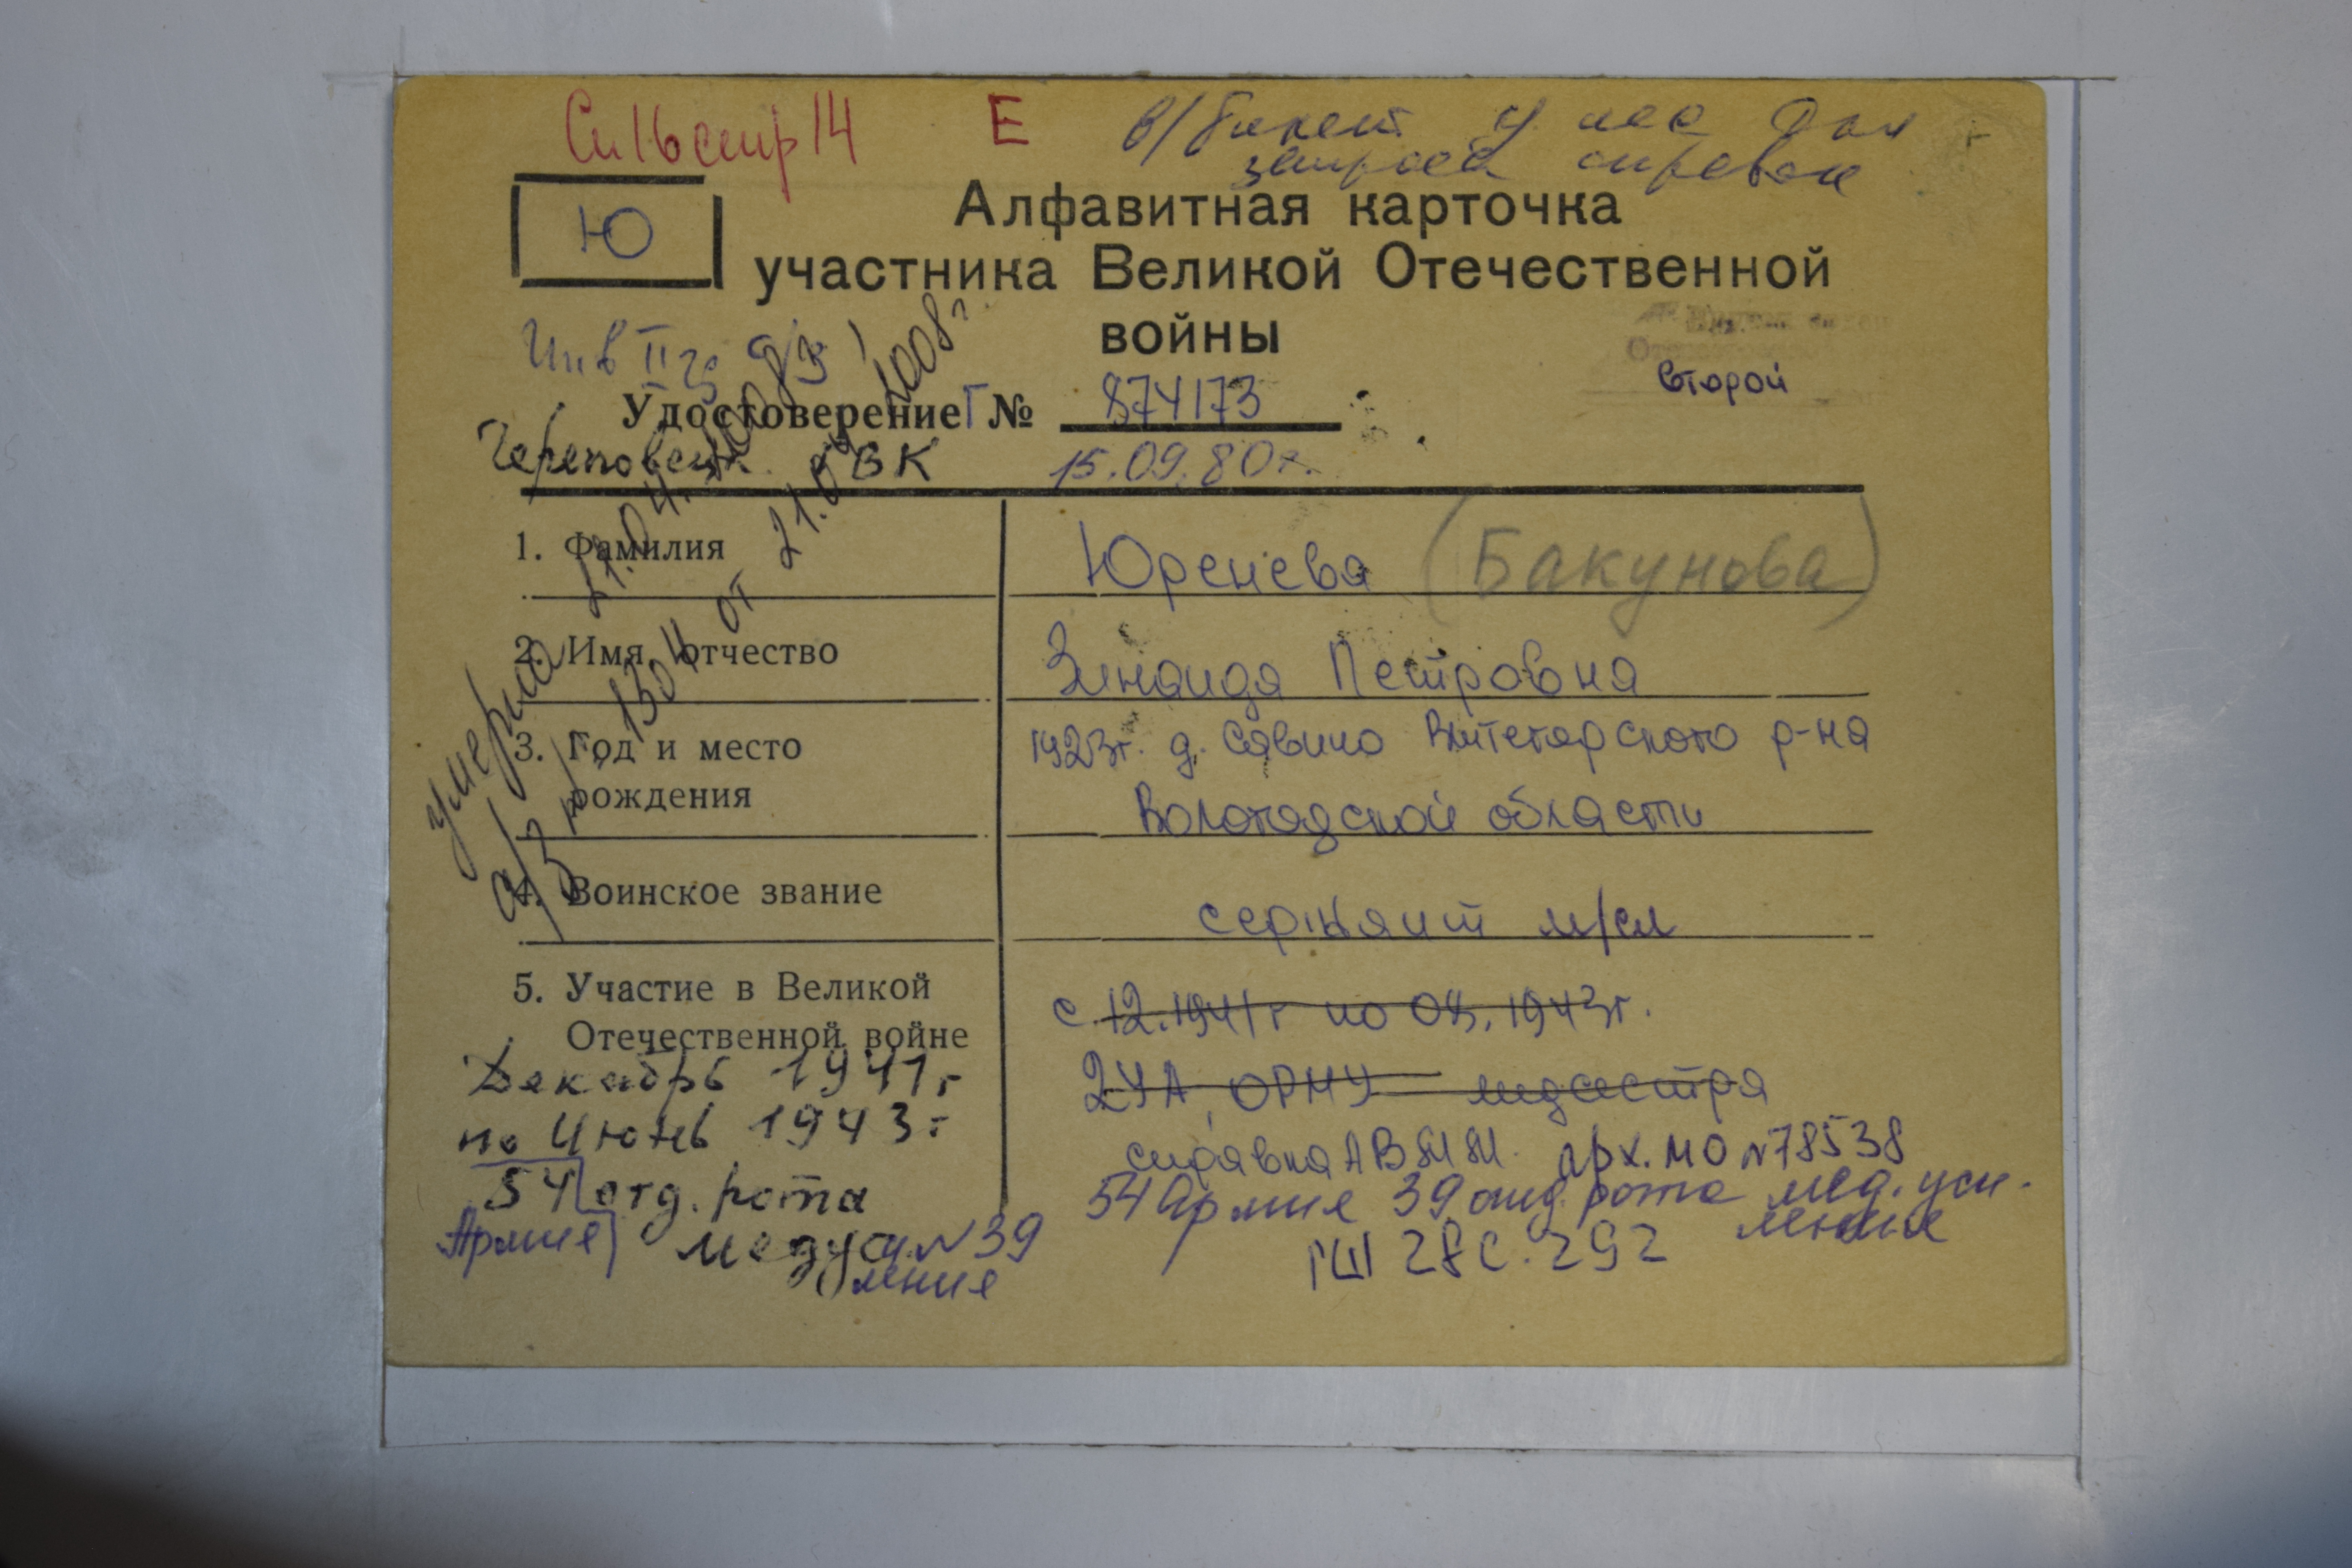 Сп 16 стр 14 Е в/билет у нас для
запроса справок
Ю
Алфавитная карточка
участника Великой Отечественной
войны
Инв II гр
второй
Удостоверение Г № 874173
Череповец ОВК 15.09.80г.
умерла 21.04.2008
а/з № 1304 от 21.04.2008г
1. Фамилия Юренева (Бакунова)
2. Имя, отчество Зинаида Петровна
3. Год и место рождения 1923г. д. Савино Вытегорского р-на
Вологодской области
4. Воинское звание сержант м/сл
5. Участие в Великой
Отечественной войне
с 12.1941г по 04.1943г.
2УА, ОРМУ медсестра
справка АВММ. арх. МО №78538
54 Армия 39 отд. рота мед. уси-
ления
ГШ 28 с. 292
Декабрь 1941г
по Июнь 1943г
54 отд. рота
Армия медуси №39
ления